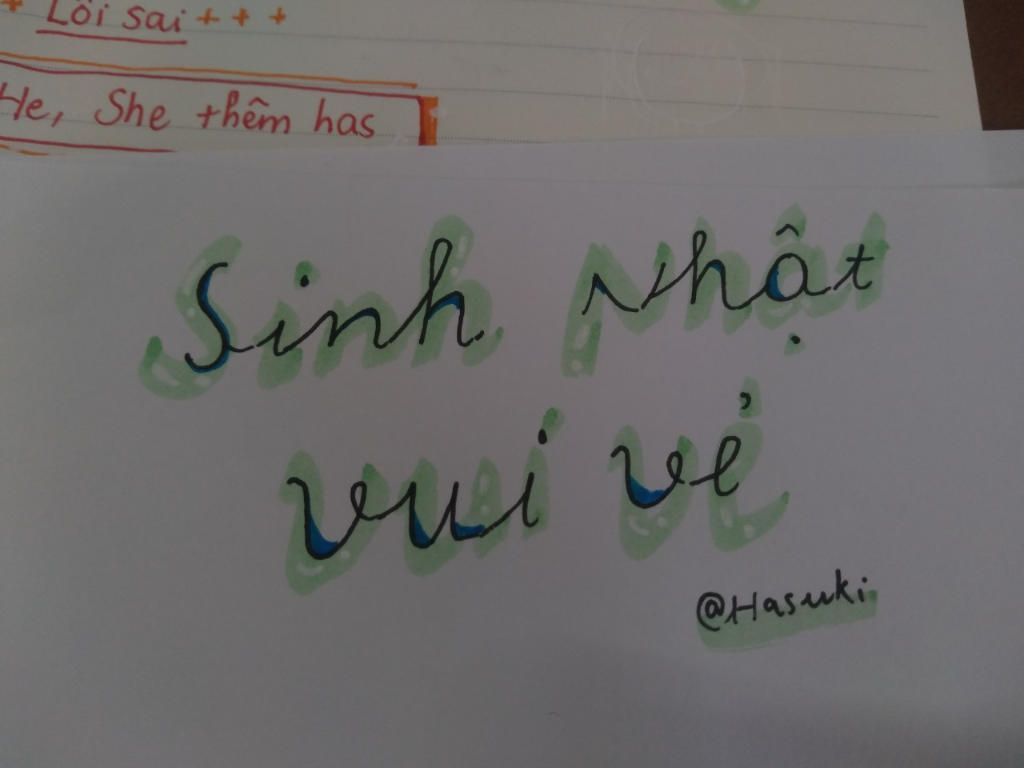 + Lỗi sai + + +
He, She thêm has
Sinh Nhật
vui vẻ
@Hasuki